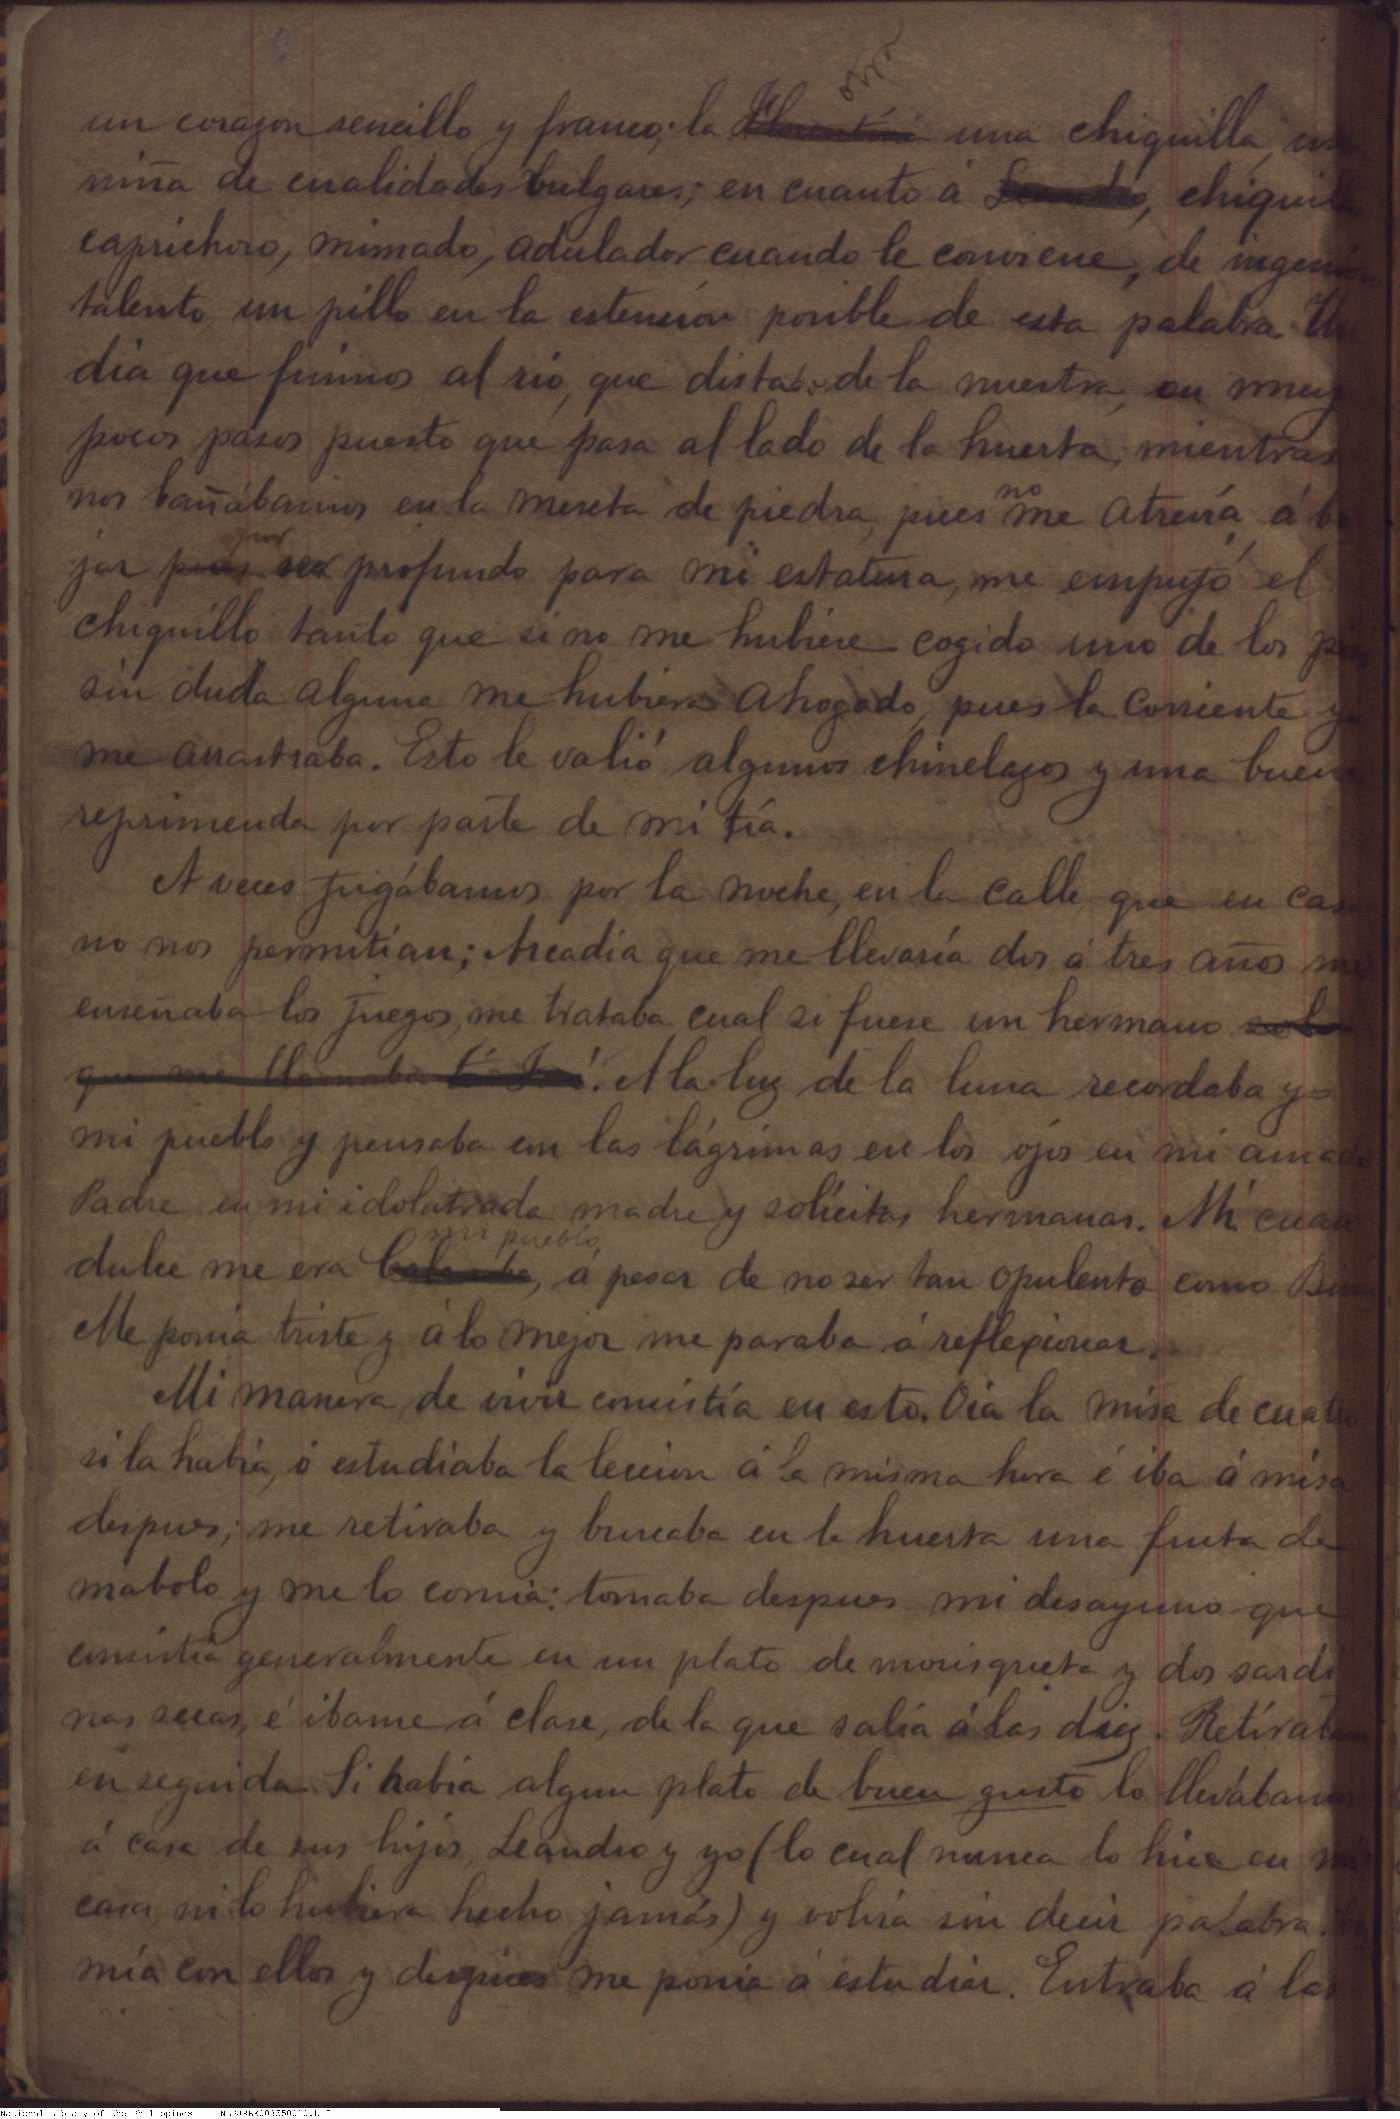 un corazon sencillo y franco; la otra una chiquilla, una
niña de cualidades vulgares; en cuanto á Leandro, chiquillo
caprichoso, mimado, adulador cuando le conviene, de ingenioso
talento, un pillo en la estension posible de esta palabra. Un
dia que fuimos al rio, que distaba de la nuestra, en muy
pocos pasos puesto que pasa al lado de la huerta, mientras
nos bañábamos en la meseta de piedra, pues no me atrevía á ba
jar por ser profundo para mi estatura, me empujó el
chiquillo tanto que si no me hubiere cogido uno de los piés
sin duda alguna me hubiera ahogado, pues la corriente ya
me arrastraba. Esto le valió algunos chinelazos y una buena
reprimenda por parte de mi tía.
A veces jugábamos por la noche, en la calle, que en casa
no nos permitían; Arcadia que me llevaría dos á tres años me
enseñaba los juegos, me trataba cual si fuese un hermano solo
que me llamaba. A la luz de la luna recordaba yo
mi pueblo y pensaba con las lágrimas en los ojos en mi amado
Padre en mi idolatrada madre y solícitas hermanas. Ah! cuan
dulce me era mi pueblo, á pesar de no ser tan opulento como
Me ponía triste y á lo mejor me paraba á reflexionar.
Mi manera de vivir consistía en esto. Oia la misa de cuatro
si la había, ó estudiaba la leccion á la misma hora é iba á misa
despues; me retiraba y buscaba en la huerta una fruta de
mabolo y me lo comia: tomaba despues mi desayuno que
consistia generalmente en un plato de morisqueta y dos sardi
nas secas, é ibame á clase, de la que salia á las diez. Retirabame
en seguida. Si habia algun plato de buen gusto lo llevábamos
á casa de sus hijos, Leandro y yo (lo cual nunca lo hice en mi
casa, ni lo hubiera hecho jamás) y volvia sin decir palabra.
mía con ellos y despues me ponia á estudiar. Entraba á las